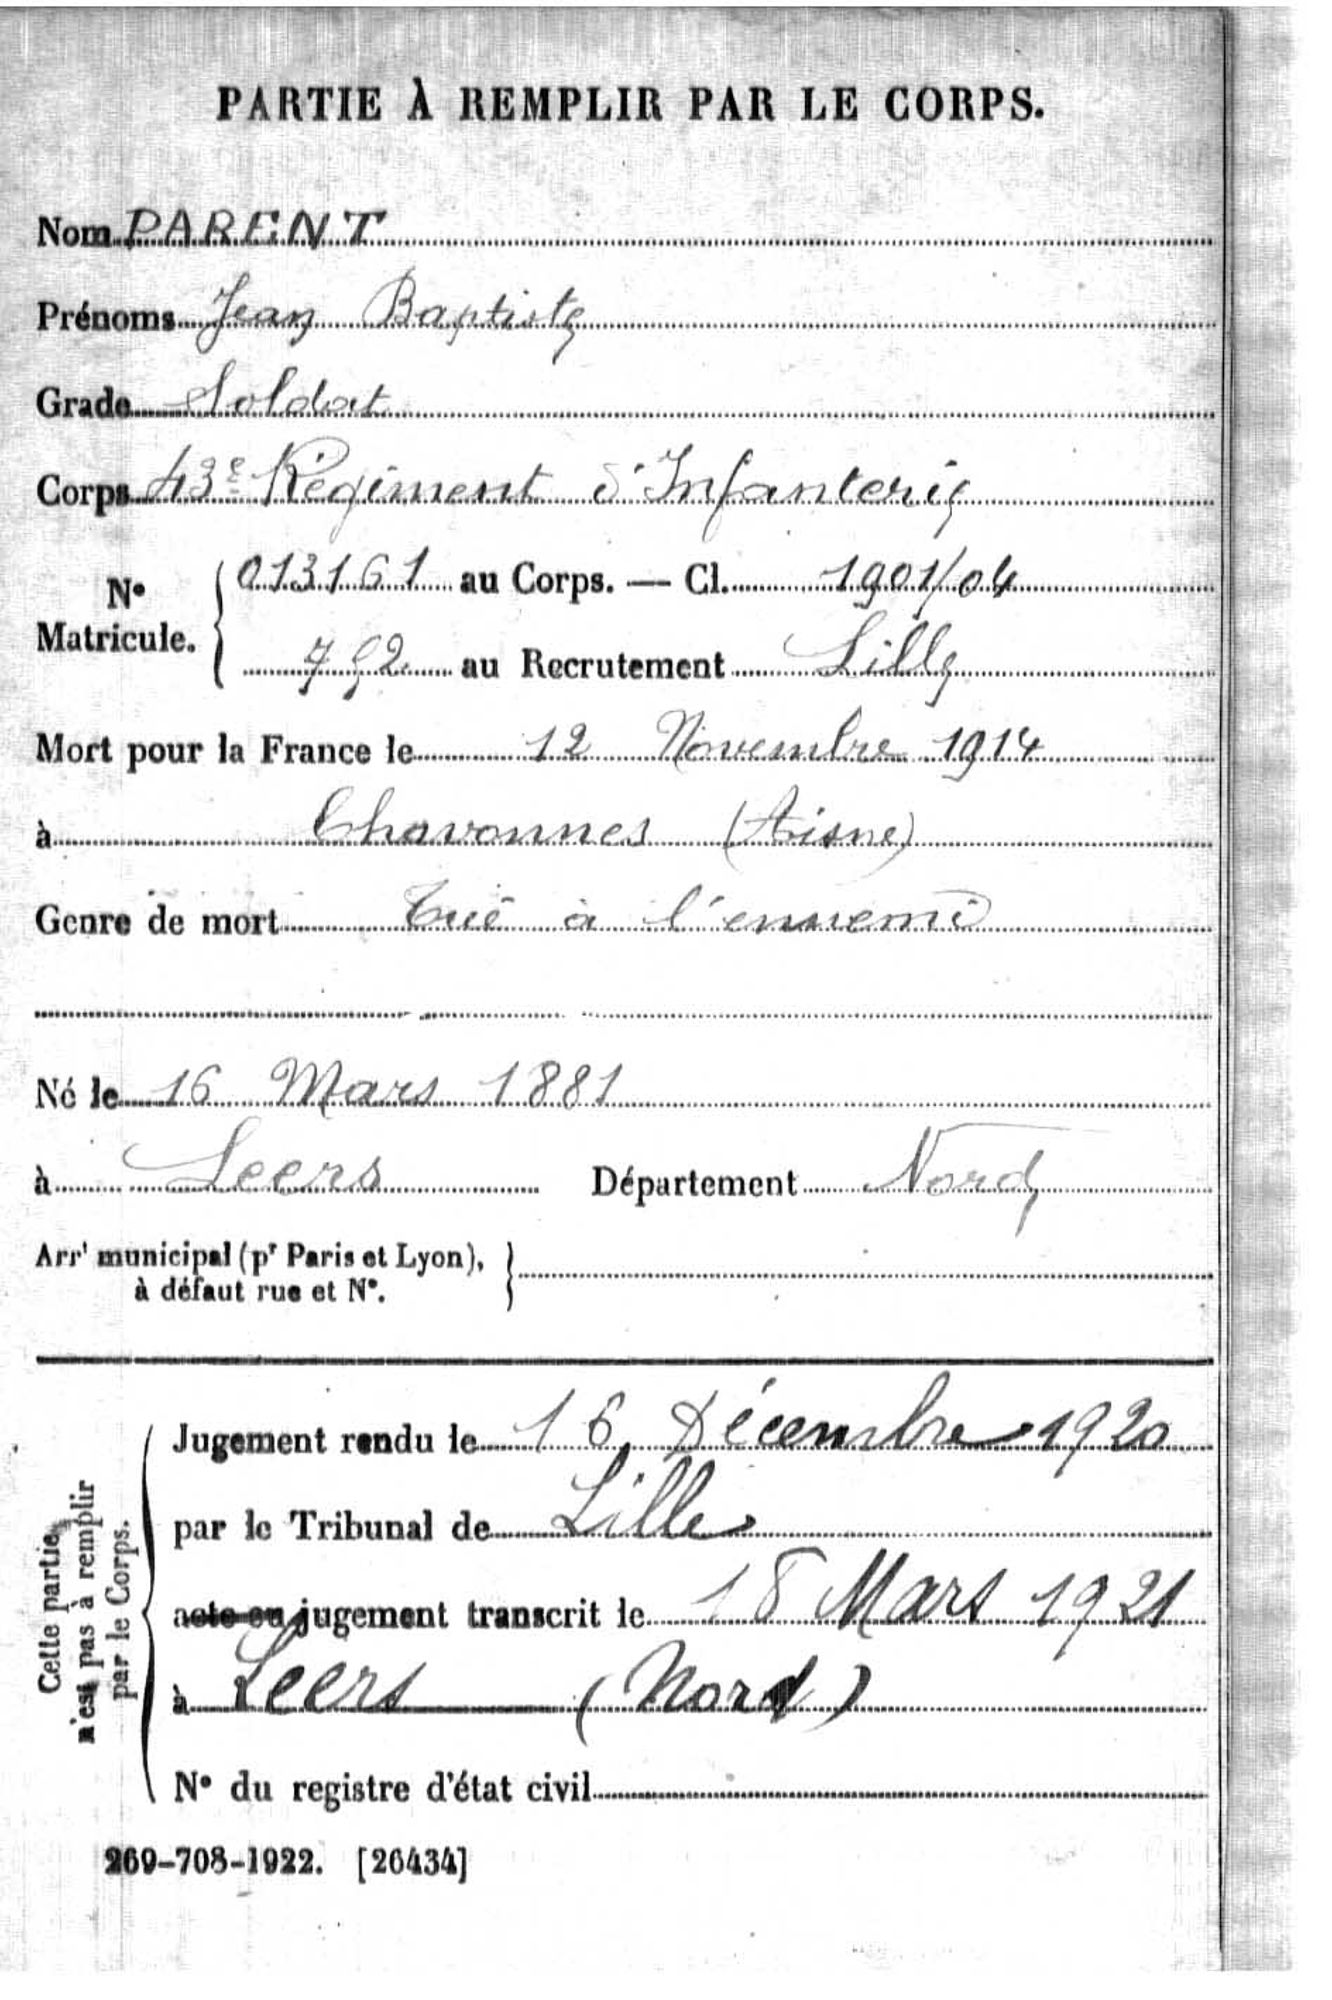 PARTIE À REMPLIR PAR LE CORPS.
Nom PARENT
Prénoms Jean Baptiste
Grade Soldat
Corps 43e Régiment d'Infanterie
No Matricule. { 013161 au Corps. — Cl. 1901/04
792 au Recrutement Lille
Mort pour la France le 12 Novembre 1914
à Chavonnes (Aisne)
Genre de mort Tué à l'ennemi
Né le 16 Mars 1881
à Leers Département Nord
Arrt municipal (pr Paris et Lyon),
à défaut rue et No.
Cette partie
n'est pas à remplir
par le Corps.
Jugement rendu le 16 Décembre 1920
par le Tribunal de Lille
acte ou jugement transcrit le 18 Mars 1921
à Leers (Nord)
No du registre d'état civil
269-708-1922. [26434]